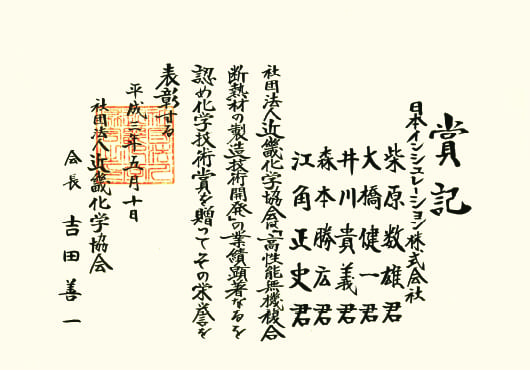 賞記
日本インシュレーション株式会社
柴原数雄君
大橋健一君
井川貴義君
森本勝広君
江角正史君
社団法人近畿化学協会は「高性能無機複合
断熱材の製造技術開発」の業績顕著なるを
認め化学技術賞を贈ってその栄誉を
表彰する
平成三年五月十日
社団法人近畿化学協会
会長 吉田善一